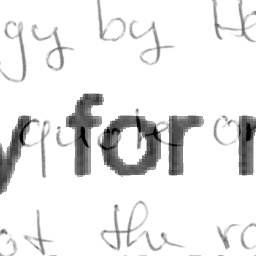 gy by He
y for r
quote on
ot the ro